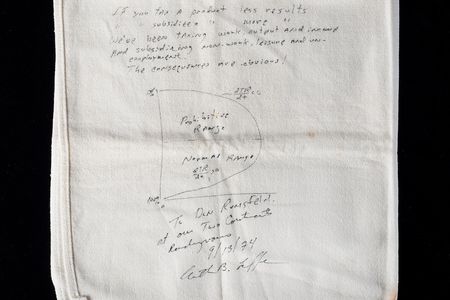 If you tax a product less results
" subsidize " more "
We've been taxing work, output and income
And subsidizing non-work, leisure and un-
employment.
The consequences are obvious!
Prohibitive
Range
Normal Range
To Don Rumsfeld,
at our Two Continents
Rendezvous
9/13/74
Arthur B. Laffer